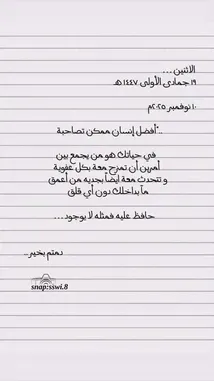 الاثنين ...
١٩ جمادى الأولى ١٤٤٧ هـ
١٠ نوفمبر ٢٠٢٥م
.."أفضل إنسان ممكن تصاحبة
في حياتك هو من يجمع بين
أمرين أن تمزح معة بكل عفوية
و تتحدث معة ايضاً بجديه من أعمق
مآ بداخلك دون أي قلق
حافظ عليه فمثله لا يوجود...
دمتم بخير..
snap:sswi.8